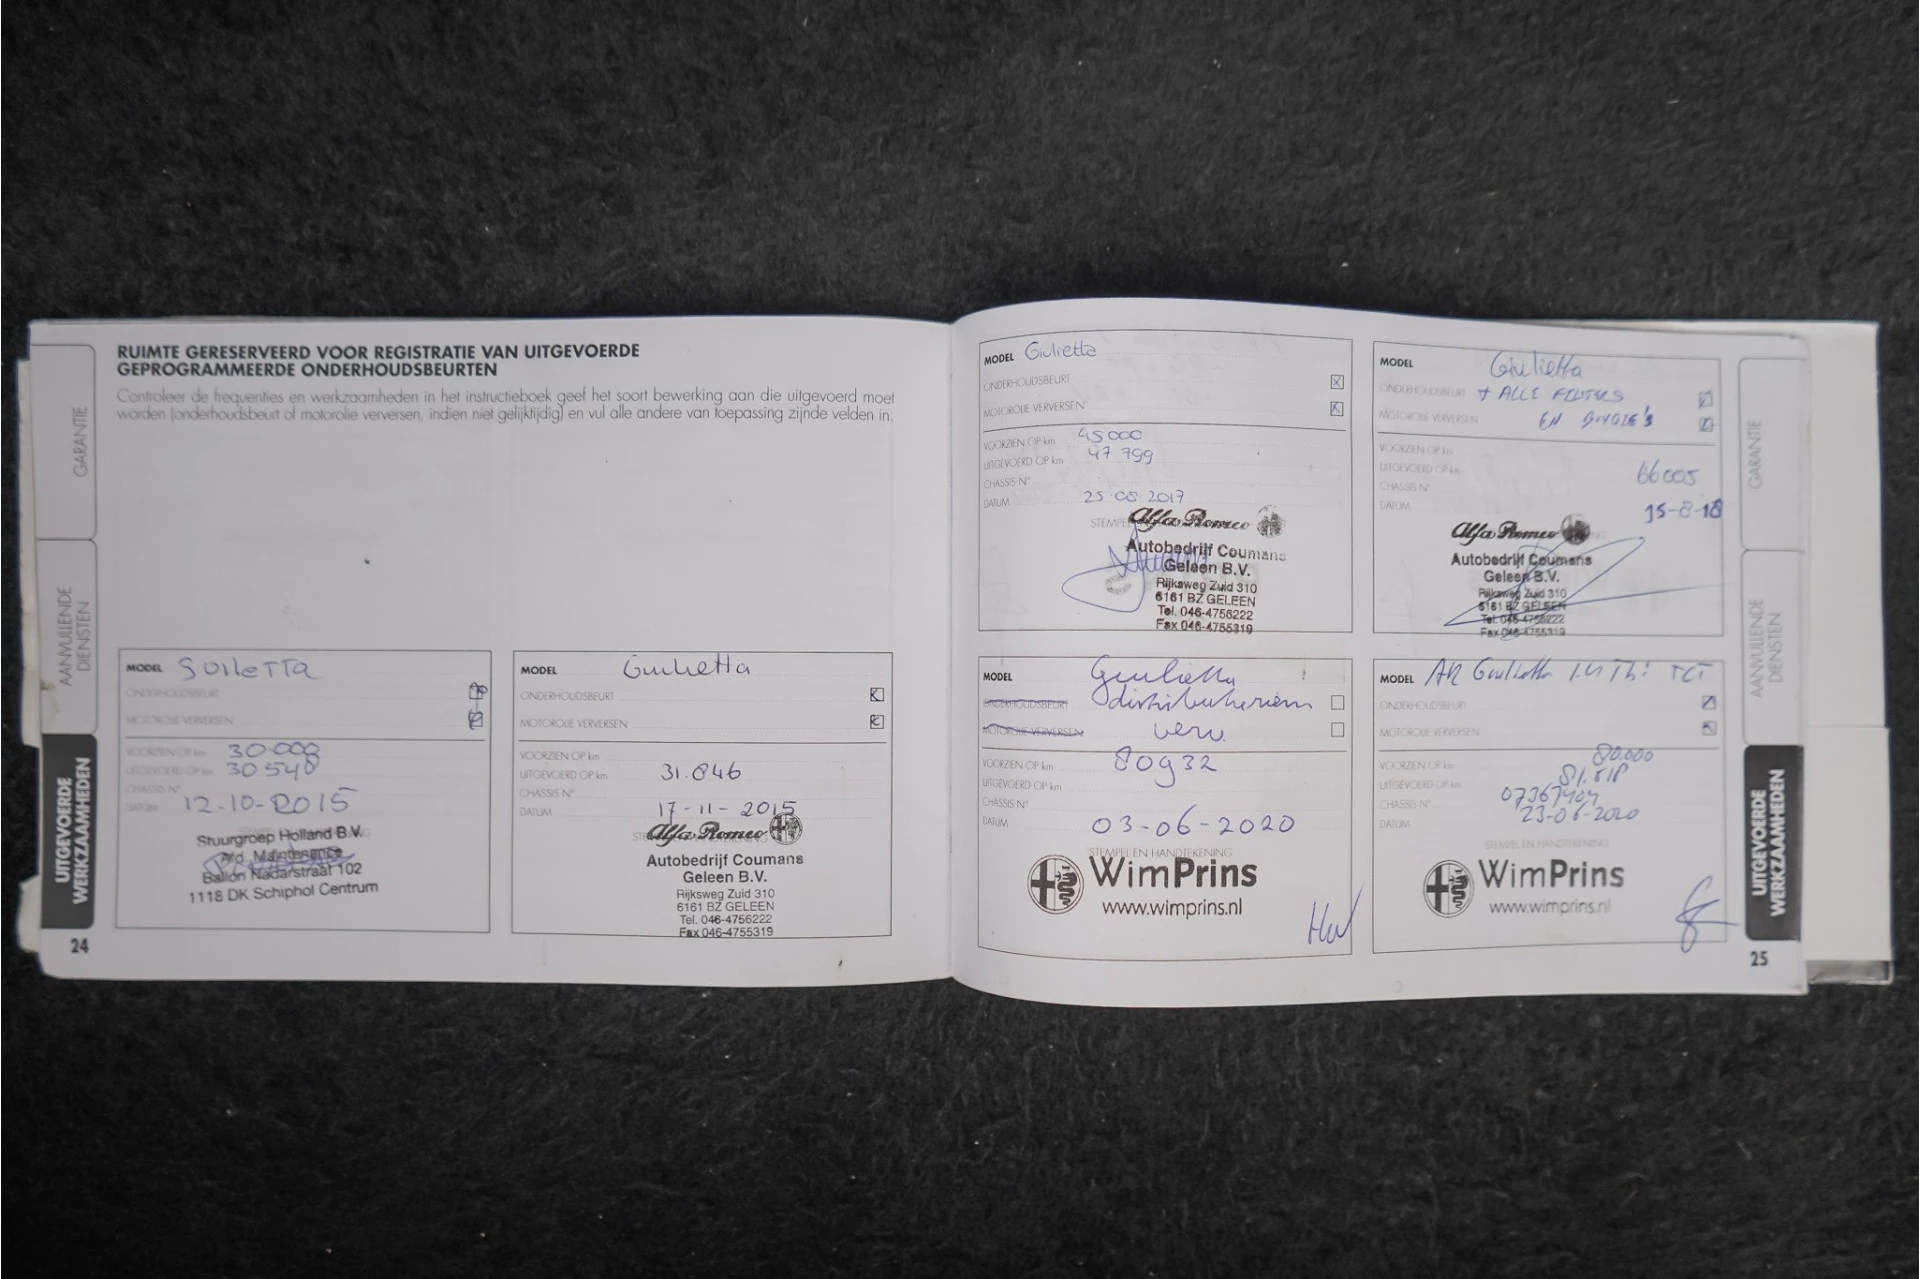 GARANTIE
AANVULLENDE
DIENSTEN
UITGEVOERDE
WERKZAAMHEDEN
24
RUIMTE GERESERVEERD VOOR REGISTRATIE VAN UITGEVOERDE
GEPROGRAMMEERDE ONDERHOUDSBEURTEN
Controleer de frequenties en werkzaamheden in het instructieboek geef het soort bewerking aan die uitgevoerd moet
worden (onderhoudsbeurt of motorolie verversen, indien niet gelijktijdig) en vul alle andere van toepassing zijnde velden in.
MODEL
ONDERHOUDSBEURT
MOTOROLIE VERVERSEN
VOORZIEN OP km 30.000
UITGEVOERD OP km 30548
CHASSIS N°
DATUM 12-10-2015
Stuurgroep Holland B.V.
Ballon Nadarstraat 102
1118 DK Schiphol Centrum
MODEL Giulietta
ONDERHOUDSBEURT
MOTOROLIE VERVERSEN
VOORZIEN OP km
UITGEVOERD OP km 31.846
CHASSIS N°
DATUM 17-11-2015
Alfa Romeo
Autobedrijf Coumans
Geleen B.V.
Rijksweg Zuid 310
6161 BZ GELEEN
Tel. 046-4756222
Fax 046-4755319
MODEL Giulietta
ONDERHOUDSBEURT
MOTOROLIE VERVERSEN
VOORZIEN OP km 45000
UITGEVOERD OP km 47799
CHASSIS N°
DATUM 25-08-2017
Alfa Romeo
Autobedrijf Coumans
Geleen B.V.
Rijksweg Zuid 310
6161 BZ GELEEN
Tel. 046-4756222
Fax 046-4755319
MODEL Giulietta
ONDERHOUDSBEURT + ALLE FILTERS
MOTOROLIE VERVERSEN EN BOUGIE'S
VOORZIEN OP km
UITGEVOERD OP km 66005
CHASSIS N°
DATUM 15-8-18
Alfa Romeo
Autobedrijf Coumans
Geleen B.V.
Rijksweg Zuid 310
6161 BZ GELEEN
Tel. 046-4756222
Fax 046-4755319
MODEL Giulietta
ONDERHOUDSBEURT distributieriem
MOTOROLIE VERVERSEN verv.
VOORZIEN OP km 80932
UITGEVOERD OP km
CHASSIS N°
DATUM 03-06-2020
STEMPEL EN HANDTEKENING
WimPrins
www.wimprins.nl
MODEL AR Giulietta 1.4 TBi TCT
ONDERHOUDSBEURT
MOTOROLIE VERVERSEN
VOORZIEN OP km 80.000
UITGEVOERD OP km
CHASSIS N° 07367404
DATUM 23-06-2020
STEMPEL EN HANDTEKENING
WimPrins
www.wimprins.nl
GARANTIE
AANVULLENDE
DIENSTEN
UITGEVOERDE
WERKZAAMHEDEN
25